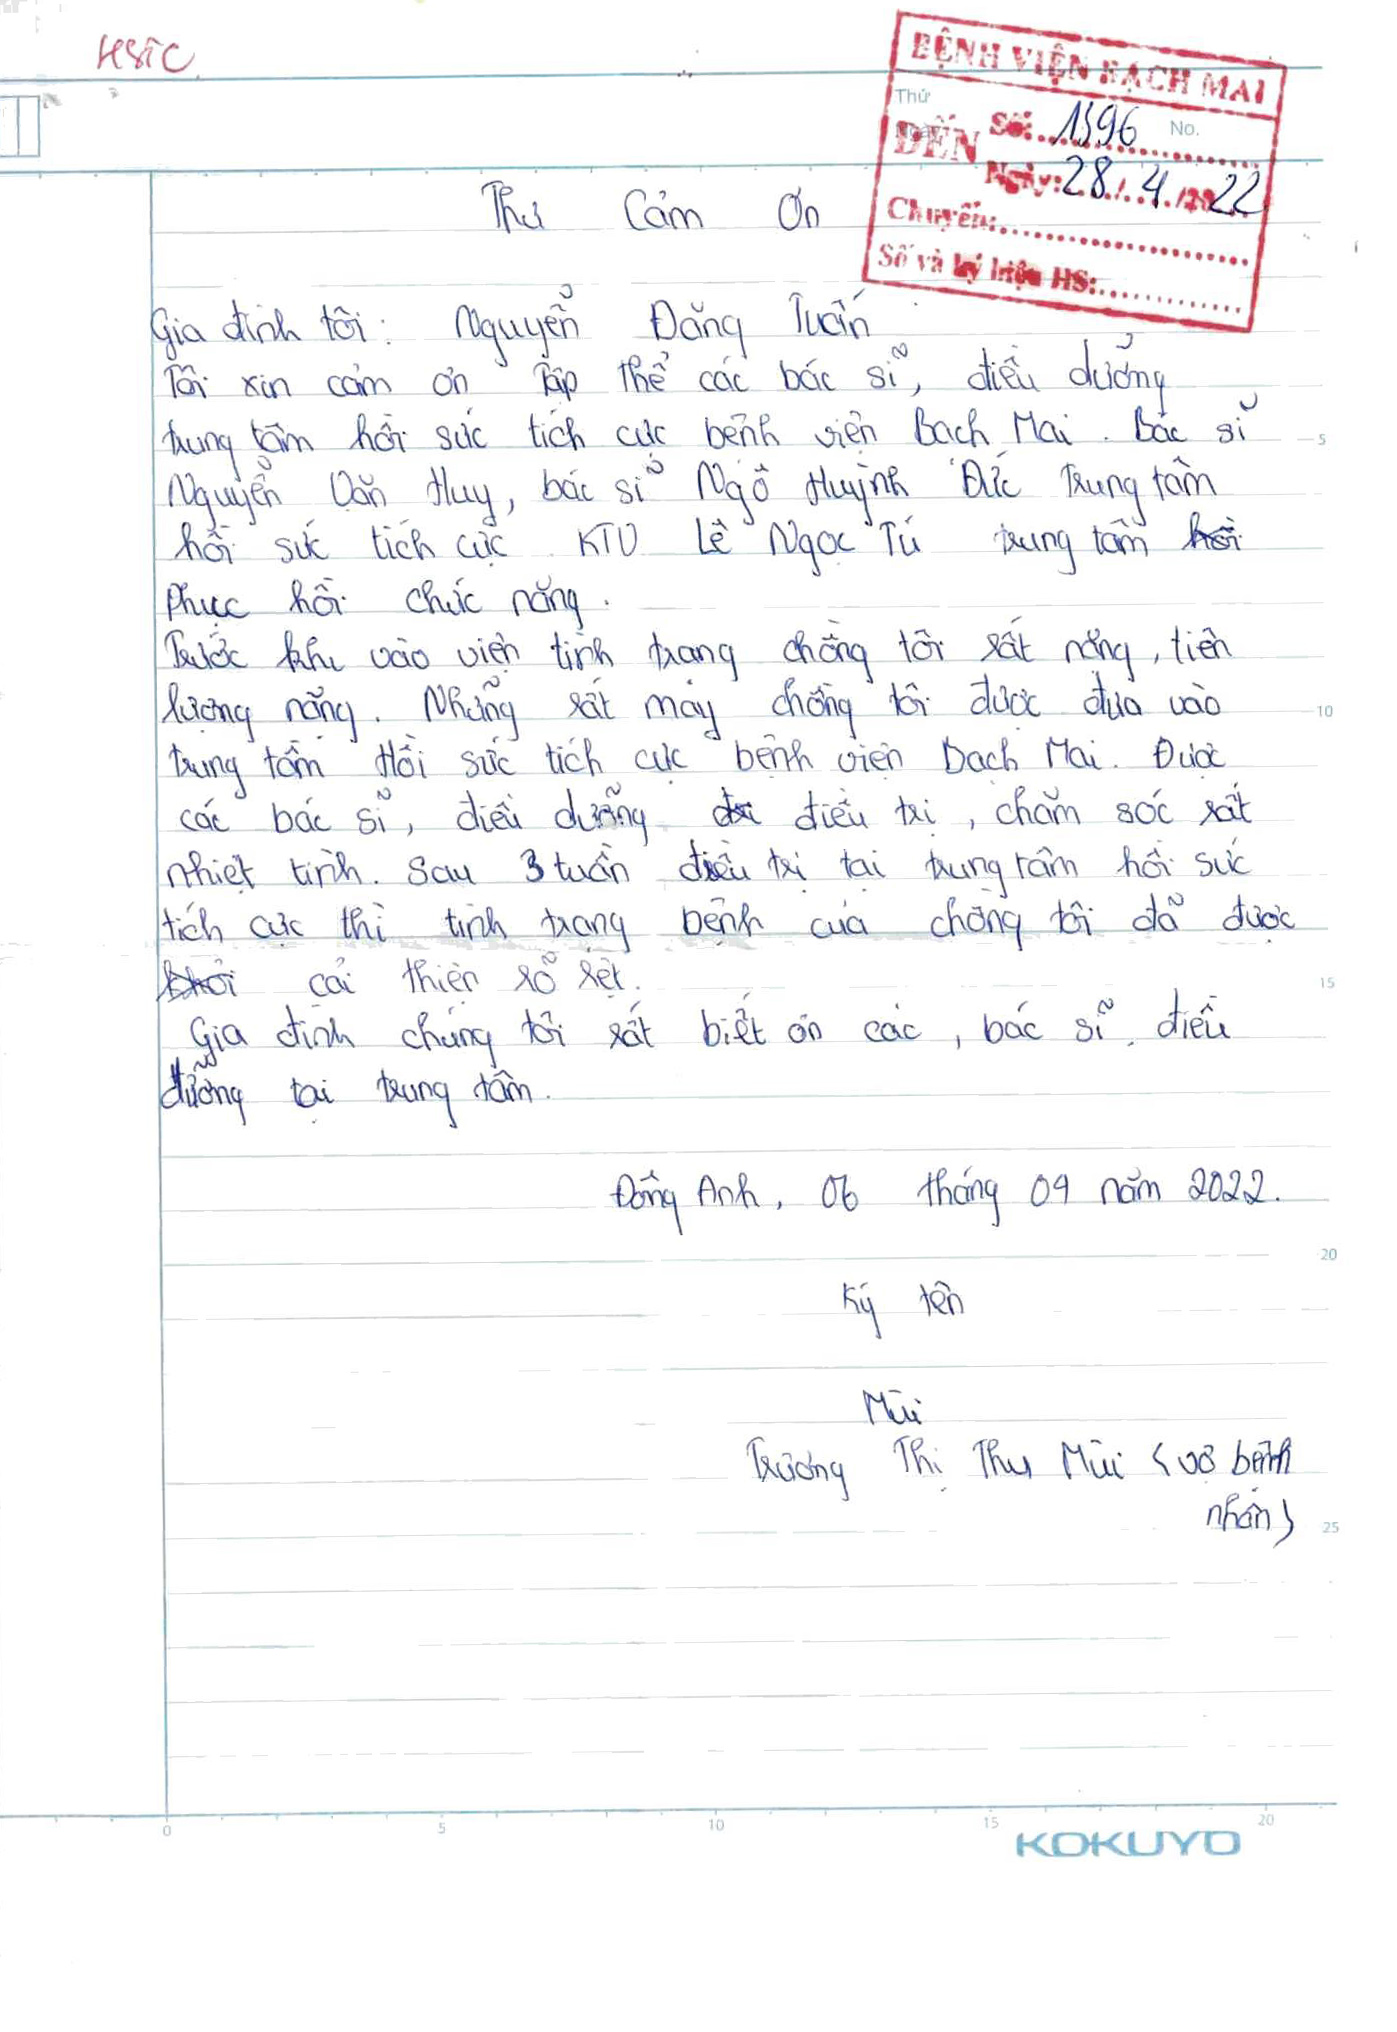 HSTC
BỆNH VIỆN BẠCH MAI
Thứ
No.
ĐẾN Số: 1396
Ngày: 28/4/2022
Chuyển:
Số và ký hiệu HS:
Thư Cảm Ơn
Gia đình tôi: Nguyễn Đăng Tuấn
Tôi xin cảm ơn Tập thể các bác sĩ, điều dưỡng
trung tâm hồi sức tích cực bệnh viện Bạch Mai. Bác sĩ
Nguyễn Văn Huy, bác sĩ Ngô Huỳnh Đức Trung tâm
hồi sức tích cực. KTV Lê Ngọc Tú trung tâm hồi
phục hồi chức năng.
Trước khi vào viện tình trạng chồng tôi rất nặng, tiên
lượng nặng. Nhưng rất may chồng tôi được đưa vào
trung tâm Hồi sức tích cực bệnh viện Bạch Mai. Được
các bác sĩ, điều dưỡng điều trị, chăm sóc rất
nhiệt tình. Sau 3 tuần điều trị tại trung tâm hồi sức
tích cực thì tình trạng bệnh của chồng tôi đã được
khỏi cải thiện rõ rệt.
Gia đình chúng tôi rất biết ơn các, bác sĩ, điều
dưỡng tại trung tâm.
Đông Anh, 06 tháng 04 năm 2022.
Ký tên
Mùi
Trương Thị Thu Mùi (vợ bệnh
nhân)
5
10
15
20
25
0 5 10 15 20
KOKUYO